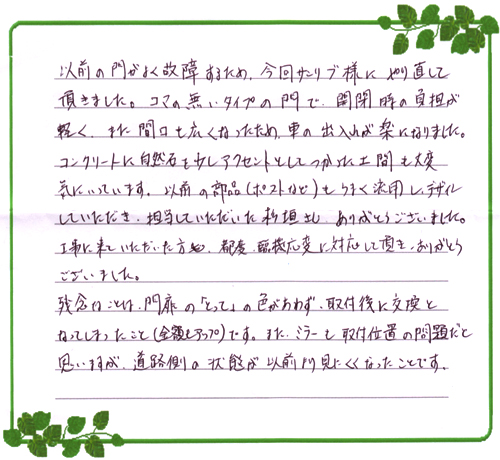 以前の門がよく故障するため、今回サンリブ様に やり直して
頂きました。コマの無いタイプの門で、開閉時の負担が
軽く、また間口も広くなったため、車の出入れが楽になりました。
コンクリートに自然石を少しアクセントとしてつかった土間も大変
気にいっています。以前の部品(ポストなど)もうまく流用しデザイン
していただき、担当していただいた 様、ありがとうございました。
工事に来ていただいた方も、都度、臨機応変に対応して頂き、ありがとう
ございました。
残念なことは、門扉の「とって」の色があわず、取付後に交換と
なってしまったこと(金額もアップ)です。また、ミラーも取付位置の問題だと
思いますが、道路側の状態が以前より見にくくなったことです。